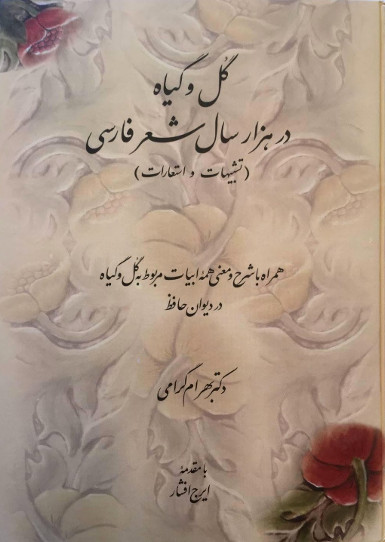 گل و گیاه
در هزار سال شعر فارسی
(تشبیهات و استعارات)
همراه با شرح و معنی همهٔ ابیات مربوط به گل و گیاه
در دیوان حافظ
دکتر بهرام گرامی
با مقدمهٔ
ایرج افشار